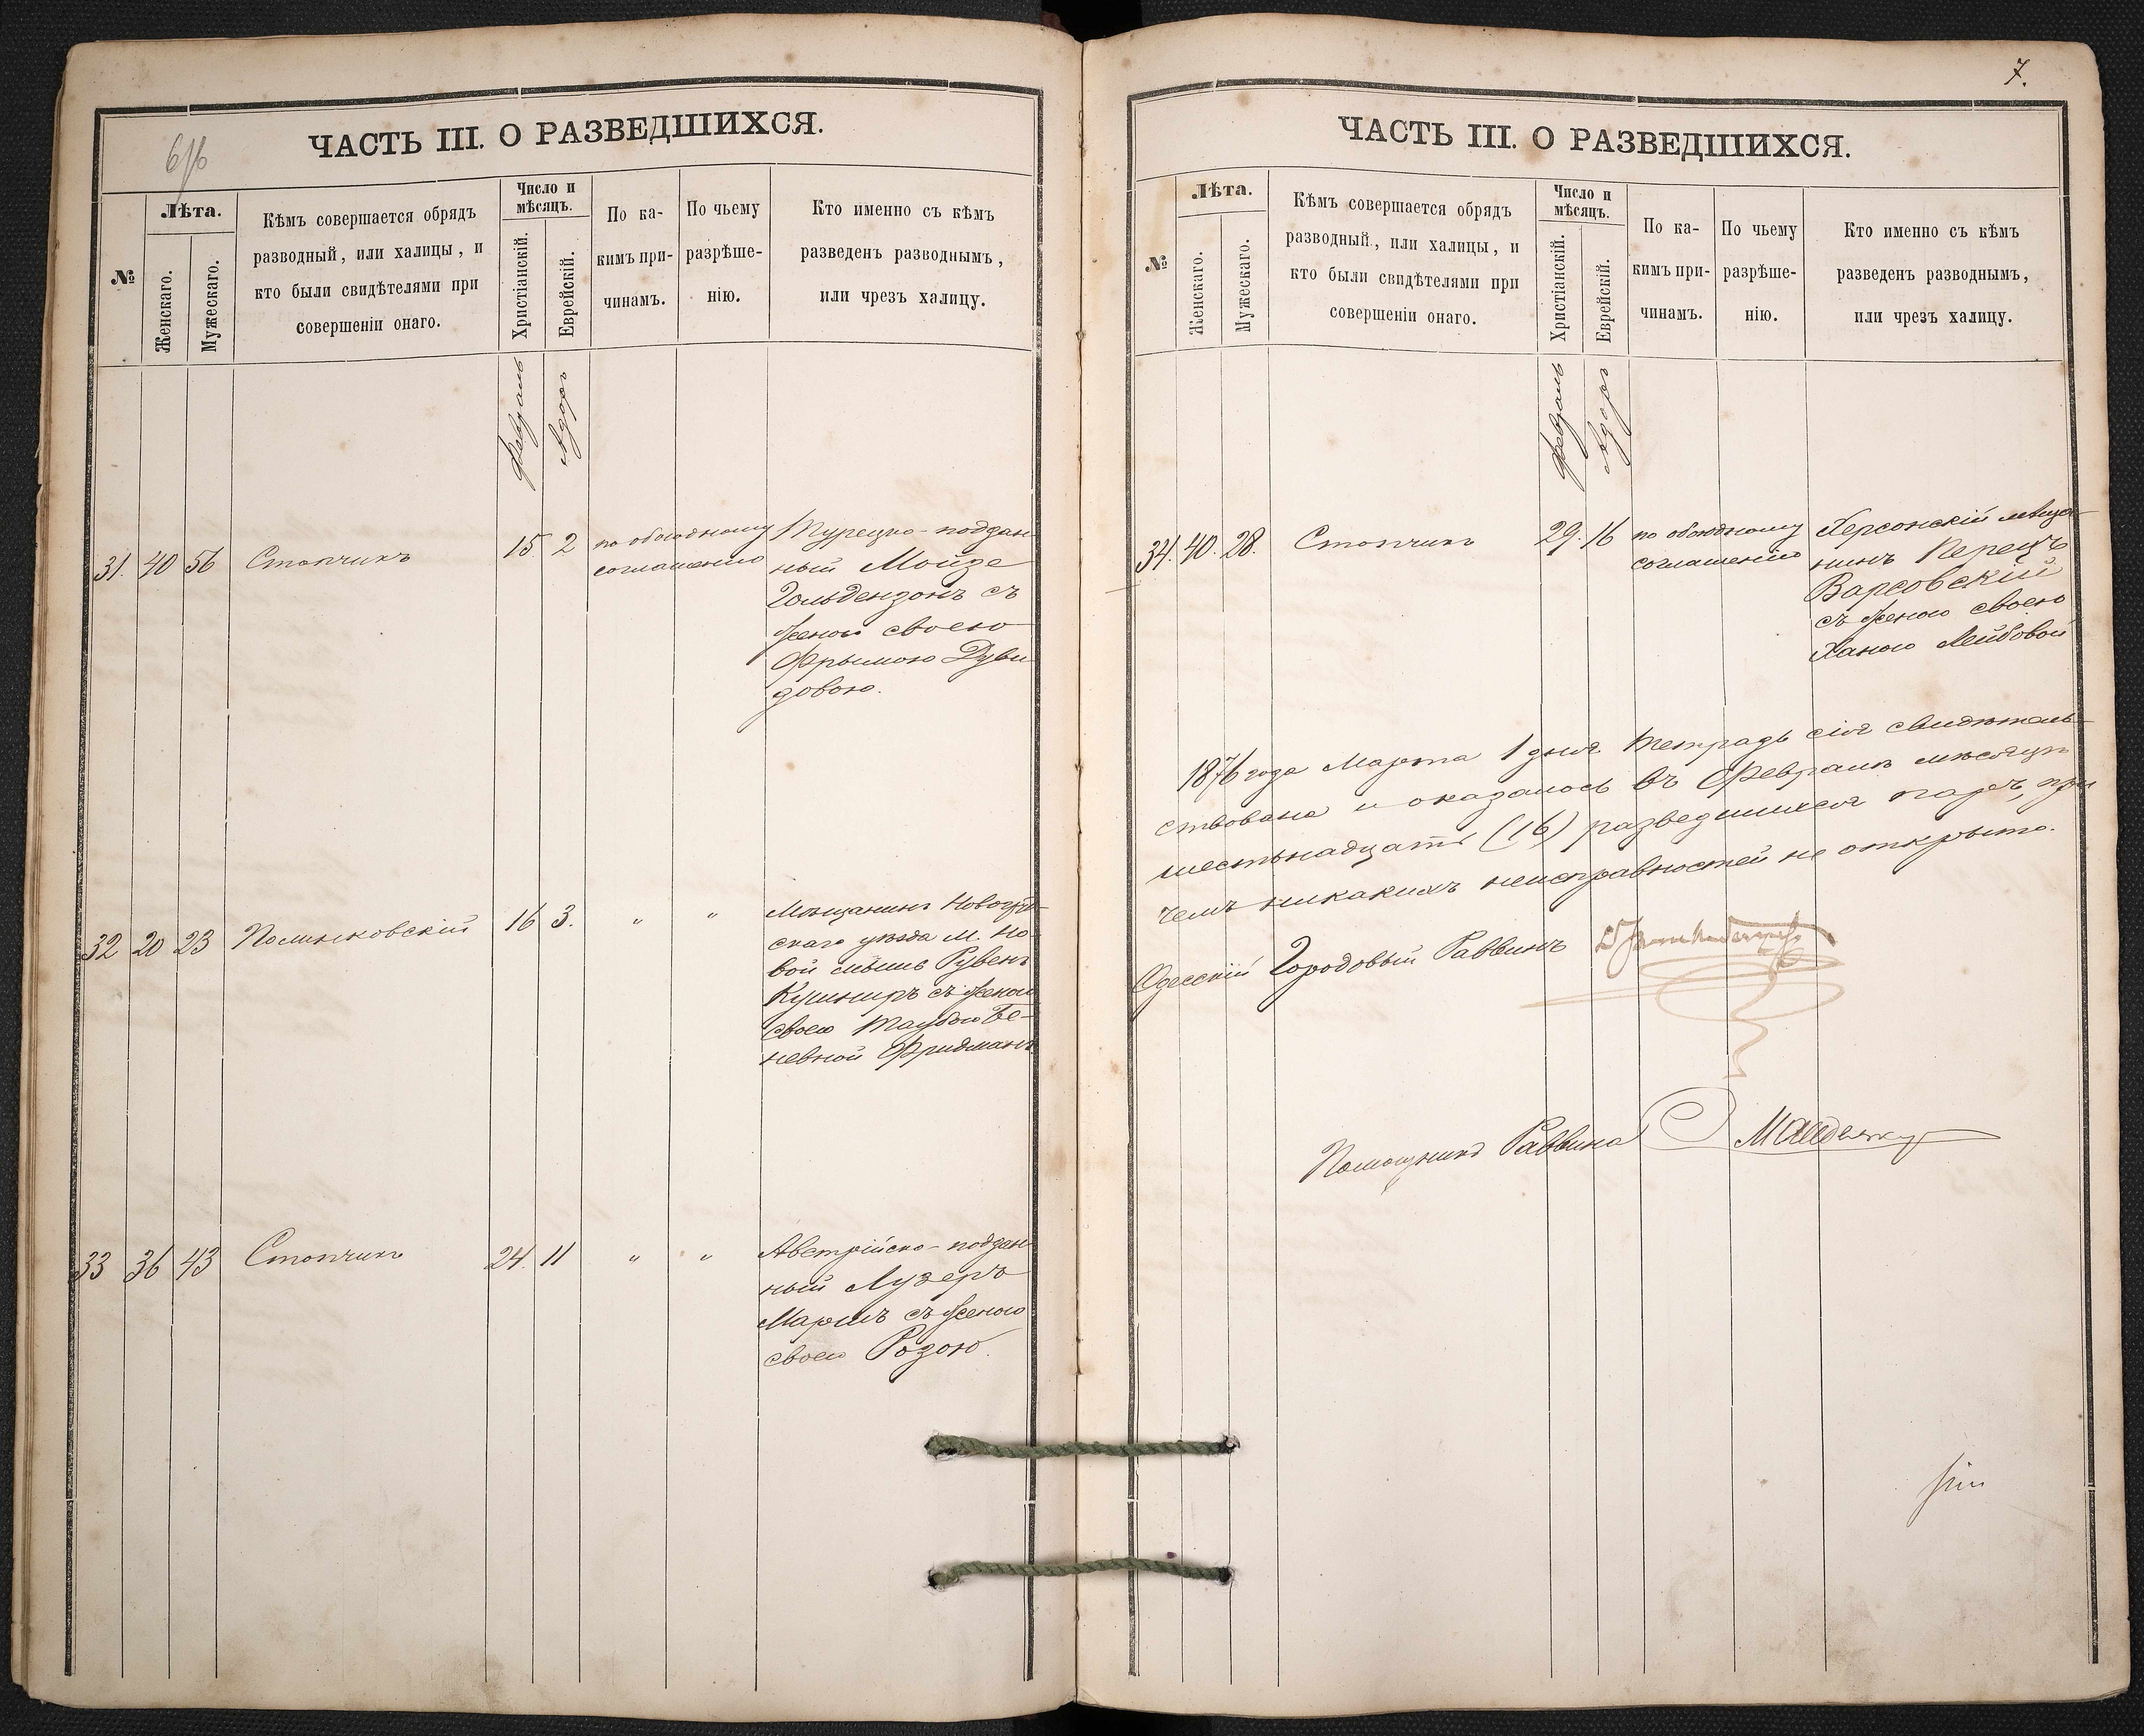 ЧАСТЬ III. О РАЗВЕДШИХСЯ.
№
Лѣта.
Женскаго.
Мужескаго.
Кѣмъ совершается обрядъ
разводный, или халицы, и
кто были свидѣтелями при
совершеніи онаго.
Число и
мѣсяцъ.
Христіанскій.
Еврейскій.
По ка-
кимъ при-
чинамъ.
По чьему
разрѣше-
нію.
Кто именно съ кѣмъ
разведенъ разводнымъ,
или чрезъ халицу.
Февраль
Адоръ
31. 40 56 Стопчикъ 15 2 по обоюдному
соглашенію
Турецко-поддан
ный Мойзе
Гольдензонъ съ
женою своею
Фрымою Дуви
довою.
32 20 23 Полинковскій 16 3. " "
Мѣщанинъ
скаго уѣзда м. Но
вой Рувенъ
Кушниръ съ женою
своею Таубою Бе-
невной Фридманъ
33 36 43 Стопчикъ 24. 11 " "
Австрійско-поддан
ный Лузеръ
съ женою
своею Розою.
7.
ЧАСТЬ III. О РАЗВЕДШИХСЯ.
№
Лѣта.
Женскаго.
Мужескаго.
Кѣмъ совершается обрядъ
разводный, или халицы, и
кто были свидѣтелями при
совершеніи онаго.
Число и
мѣсяцъ.
Христіанскій.
Еврейскій.
По ка-
кимъ при-
чинамъ.
По чьему
разрѣше-
нію.
Кто именно съ кѣмъ
разведенъ разводнымъ,
или чрезъ халицу.
Февраль
Адоръ
34. 40. 28. Стопчикъ 29. 16 по обоюдному
соглашенію
Херсонскій мѣща
нинъ Перецъ
Варсовскій
съ женою своею
Ханою Лейбовой
1876 года Марта 1 дня тетрадь сія свидѣтель-
ствована и оказалось въ Февралѣ мѣсяцѣ
шестьнадцать (16) разведшихся паръ, при
чемъ никакихъ неисправностей не открыто.
Одесскій Городовый Раввинъ
Помощникъ Раввина